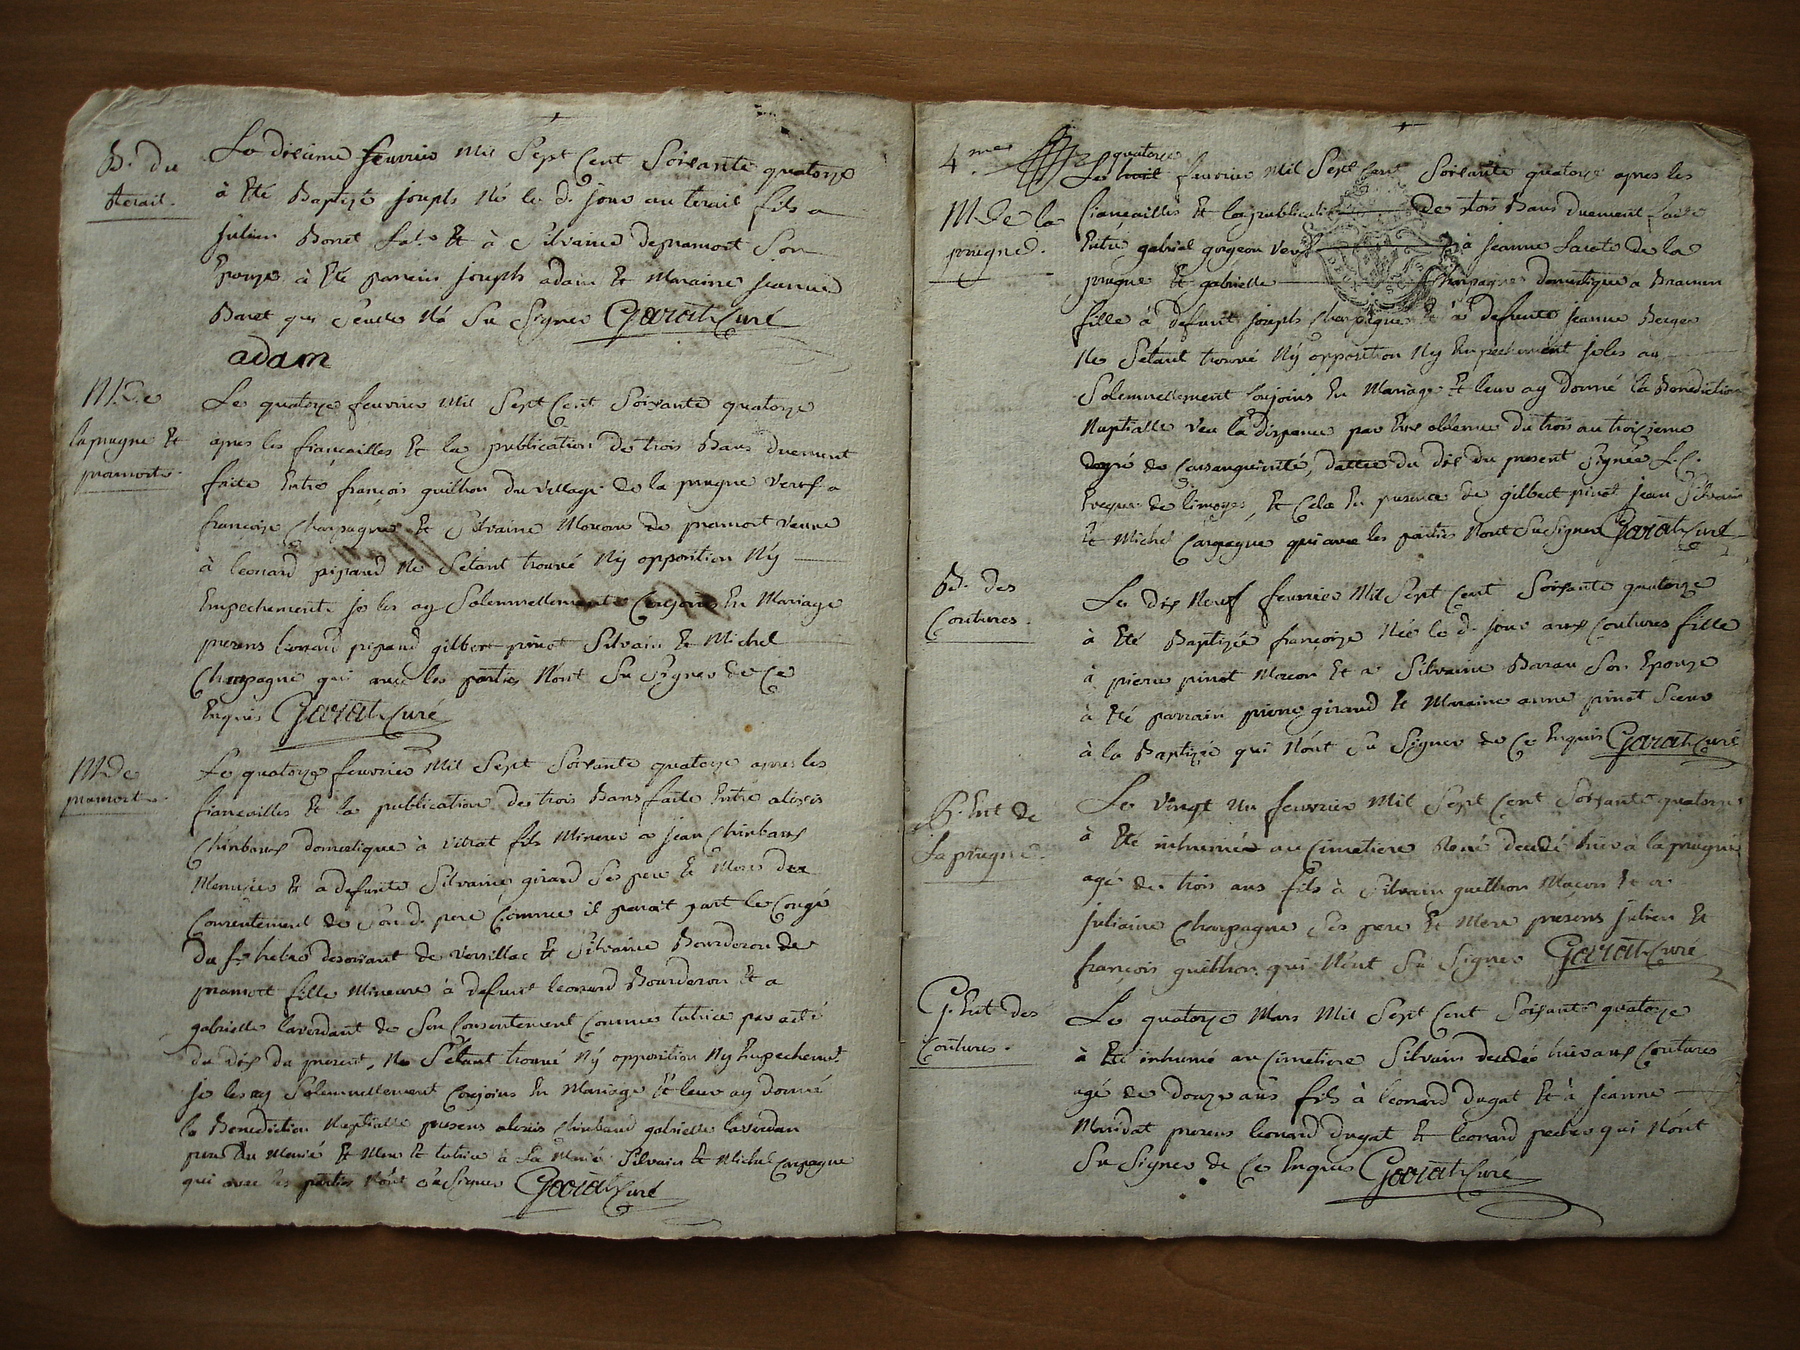 B. du
terail.
Le disieme feuvrier Mil Sept Cent Soixante quatorze
à Eté Baptizé joseph Né le d. jour au terail fils a
julien Bonet Lab. Et à Silvaine depramort Son
Epouze à Eté parrain joseph adam Et Maraine jeanne
Baret qui Seulle N'a Su Signer Garat Curé
adam
M. De
la prugne Et
pramort.
Le quatorze feuvrier Mil Sept Cent Soixante quatorze
apres les fiancailles Et la publication de trois Bans duement
faite Entré françois guilhon du village de la prugne Veuf a
françoise Chapagne Et Silvaine Moreau de pramort veuve
à leonard pipaud Ne S'etant trouvé Ny opposition Ny
Empechement je les ay Solemnellement Conjoins En Mariage
presens leonard pipaud gilbert pinot Silvain Et Michel
Chapagne qui avec les parties N'ont Su Signer de Ce
Enquis Garat Curé
M. De
pramort.
Le quatorze feuvrier Mil Sept Soixante quatorze apres les
fiancailles Et la publication des trois Bans faite Entre alexis
domestique à vitrat fils Mineur a jean
Menuzier Et a defunte Silvaine girard Ses pere Et Mere du
Consentement de Son d. pere Comme il paroit part le Congé
du Sr de Versillac Et Silvaine Bourderon de
pramort fille Mineure à defunt leonard Bourderon Et a
gabrielle laverdant de Son Consentement Comme tutrice par acte
du dix du present, Ne S'étant trouvé Ny opposition Ny Empechemt.
je les ay Solemnellement Conjoins En Mariage Et leur ay donné
la Benediction Nuptialle presens alexis gabrielle laverdan
pere du Marié Et Mere Et tutrice à La Marié Silvain Et Michel Capagne
qui avec les parties N'ont Su Signer Garat Curé
4.me
M. De la
prugne.
quatorze
Le feuvrier Mil Sept Cent Soixante quatorze apres les
fiancailles Et la publication de trois Bans duement faite
Entré gabriel gorgeon Veuf à jeanne Lacete de la
prugne Et gabrielle Chapagne domestique a
fille à defunt joseph Chapagne Et à defunte jeanne Berger
Ne S'étant trouvé Ny opposition Ny Empechement je les ay
Solemnellement Conjoins En Mariage Et leur ay donné la Benediction
Nuptialle Veu la dispance par Eux obtenue du trois au troizieme
degré de Consanguinité, dattée du dix du present Signée L. C.
Eveque de limoges, Et Cela En presence de gilbert pinot jean Silvain
Et Michel Capagne qui avec les parties N'ont Su Signer Garat Curé
B. des
Coutures.
Le dix Neuf feuvrier Mil Sept Cent Soixante quatorze
à Eté Baptizée françoize Née le d. jour aux Coutures fille
à pierre pinot Macon Et a Silvaine Barau Son Epouze
à Eté parrain pierre girard Et Maraine anne pinot Soeur
à la Baptizée qui N'ont Su Signer de Ce Enquis Garat Curé
P. Ent de
La prugne.
Le Vingt Un feuvrier Mil Sept Cent Soixante quatorze
à Eté inhumé au Cimetiere René decedé hier à la prugne
agé de trois ans fils à Silvain guilhon Macon Et a
juliaine Chapagne Ses pere Et Mere presens julien Et
françois guilhon qui N'ont Su Signer Garat Curé
G. Ent des
Coutures.
Le quatorze Mars Mil Sept Cent Soixante quatorze
à Eté inhumé au Cimetiere Silvain decedé hier aux Coutures
agé de douze ans fils à leonard dugat Et à jeanne
Maridat presens leonard dugat Et leonard qui N'ont
Su Signer de Ce Enquis Garat Curé